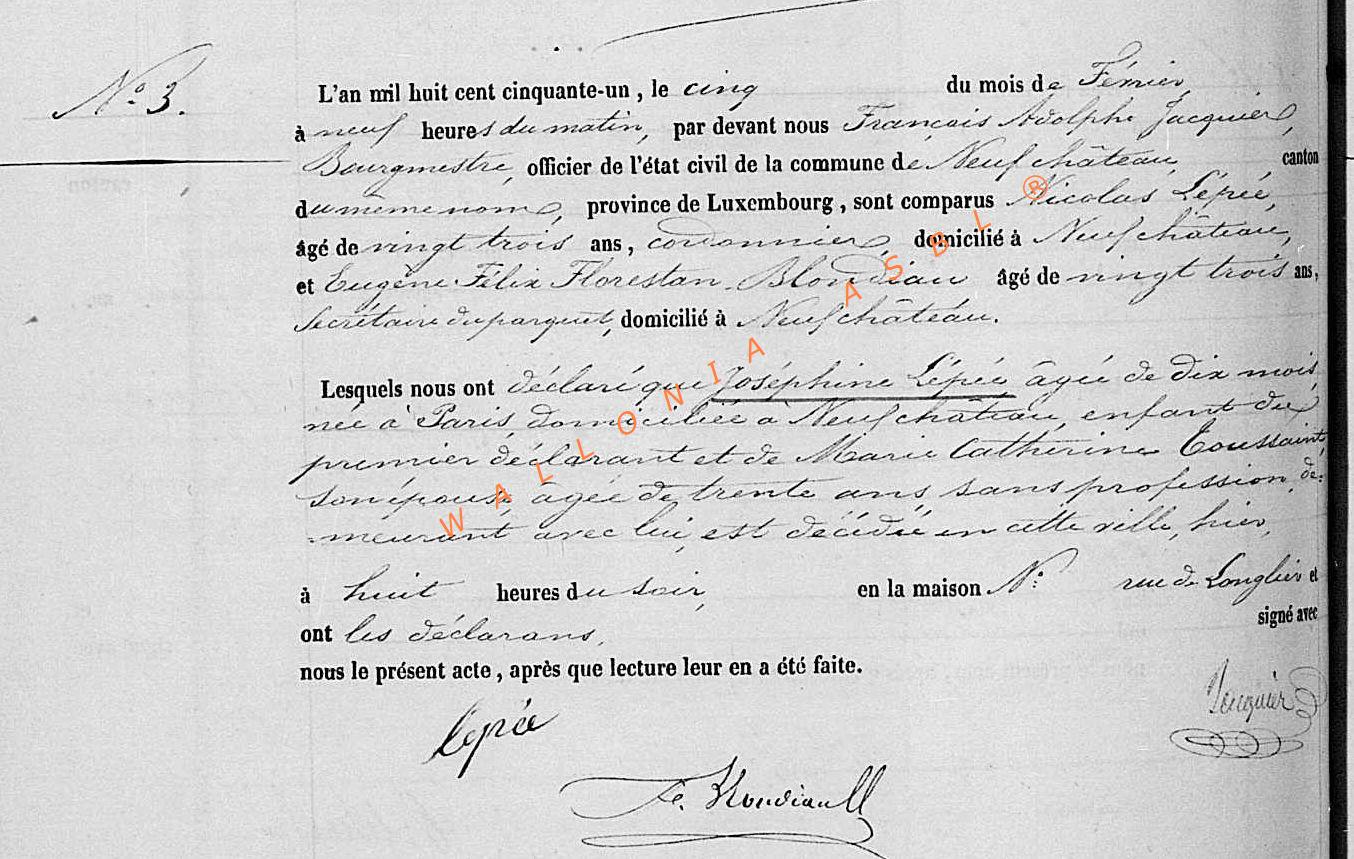 N.° 3.
L'an mil huit cent cinquante-un, le cinq du mois de Février,
à neuf heures du matin, par devant nous François Adolphe Jacquier,
Bourgmestre, officier de l'état civil de la commune de Neufchâteau, canton
du même nom, province de Luxembourg, sont comparus Nicolas Lépée,
âgé de vingt trois ans, cordonnier, domicilié à Neufchâteau,
et Eugène Félix Florestan Blondiau âgé de vingt trois ans,
Secrétaire du parquet, domicilié à Neufchâteau.
Lesquels nous ont déclaré que Joséphine Lépée âgée de dix mois,
née à Paris, domiciliée à Neufchâteau, enfant du
premier déclarant et de Marie Catherine Toussaint,
son épouse, âgée de trente ans, sans profession, de=
=meurant avec lui, est décédée en cette ville, hier,
à huit heures du soir, en la maison N.° rue de Longlier et
ont les déclarans, signé avec
nous le présent acte, après que lecture leur en a été faite.
Lepée
Jacquier
Fe. Blondiau
WALLONIA ASBL ®